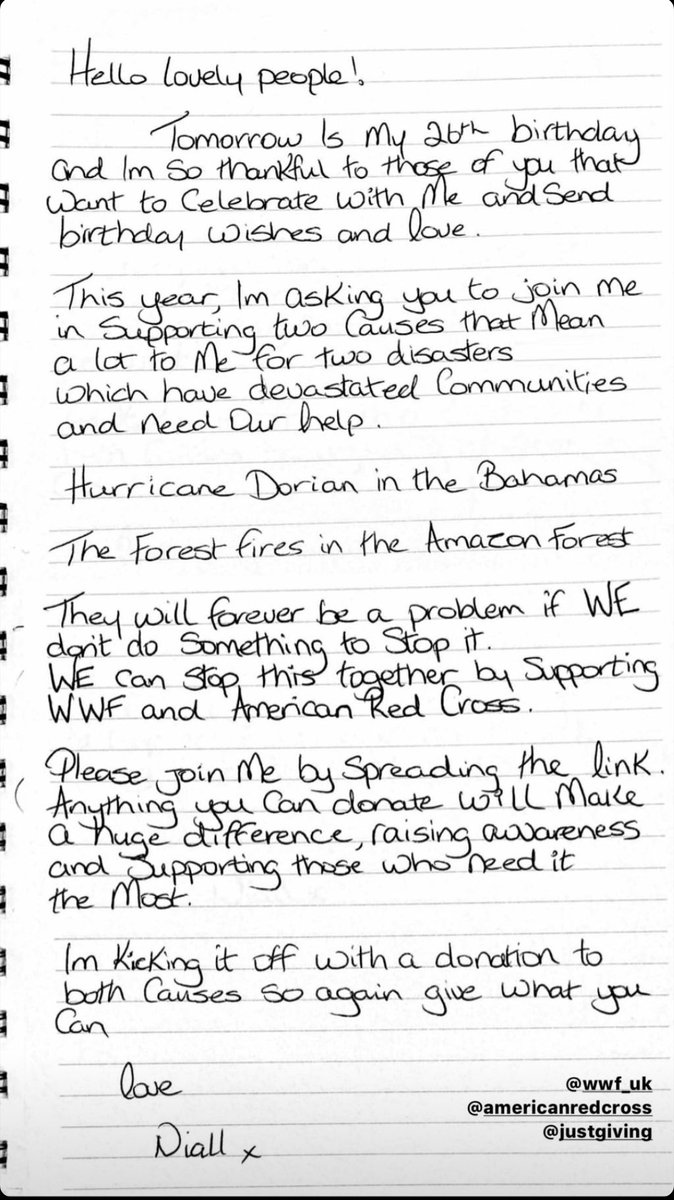 Hello lovely people!
Tomorrow Is My 26th birthday
and Im So thankful to those of you that
want to Celebrate with Me and Send
birthday wishes and love.
This year, Im asking you to join me
in Supporting two Causes that Mean
a lot to Me for two disasters
which have devastated Communities
and need Our help.
Hurricane Dorian in the Bahamas
The Forest fires in the Amazon Forest
They will forever be a problem if WE
don't do Something to Stop it.
WE can stop this together by Supporting
WWF and American Red Cross.
Please join Me by Spreading the link.
Anything you Can donate will Make
a huge difference, raising awareness
and Supporting those who need it
the Most.
Im Kicking it off with a donation to
both Causes so again give what you
Can
love
Niall x
@wwf_uk
@americanredcross
@justgiving